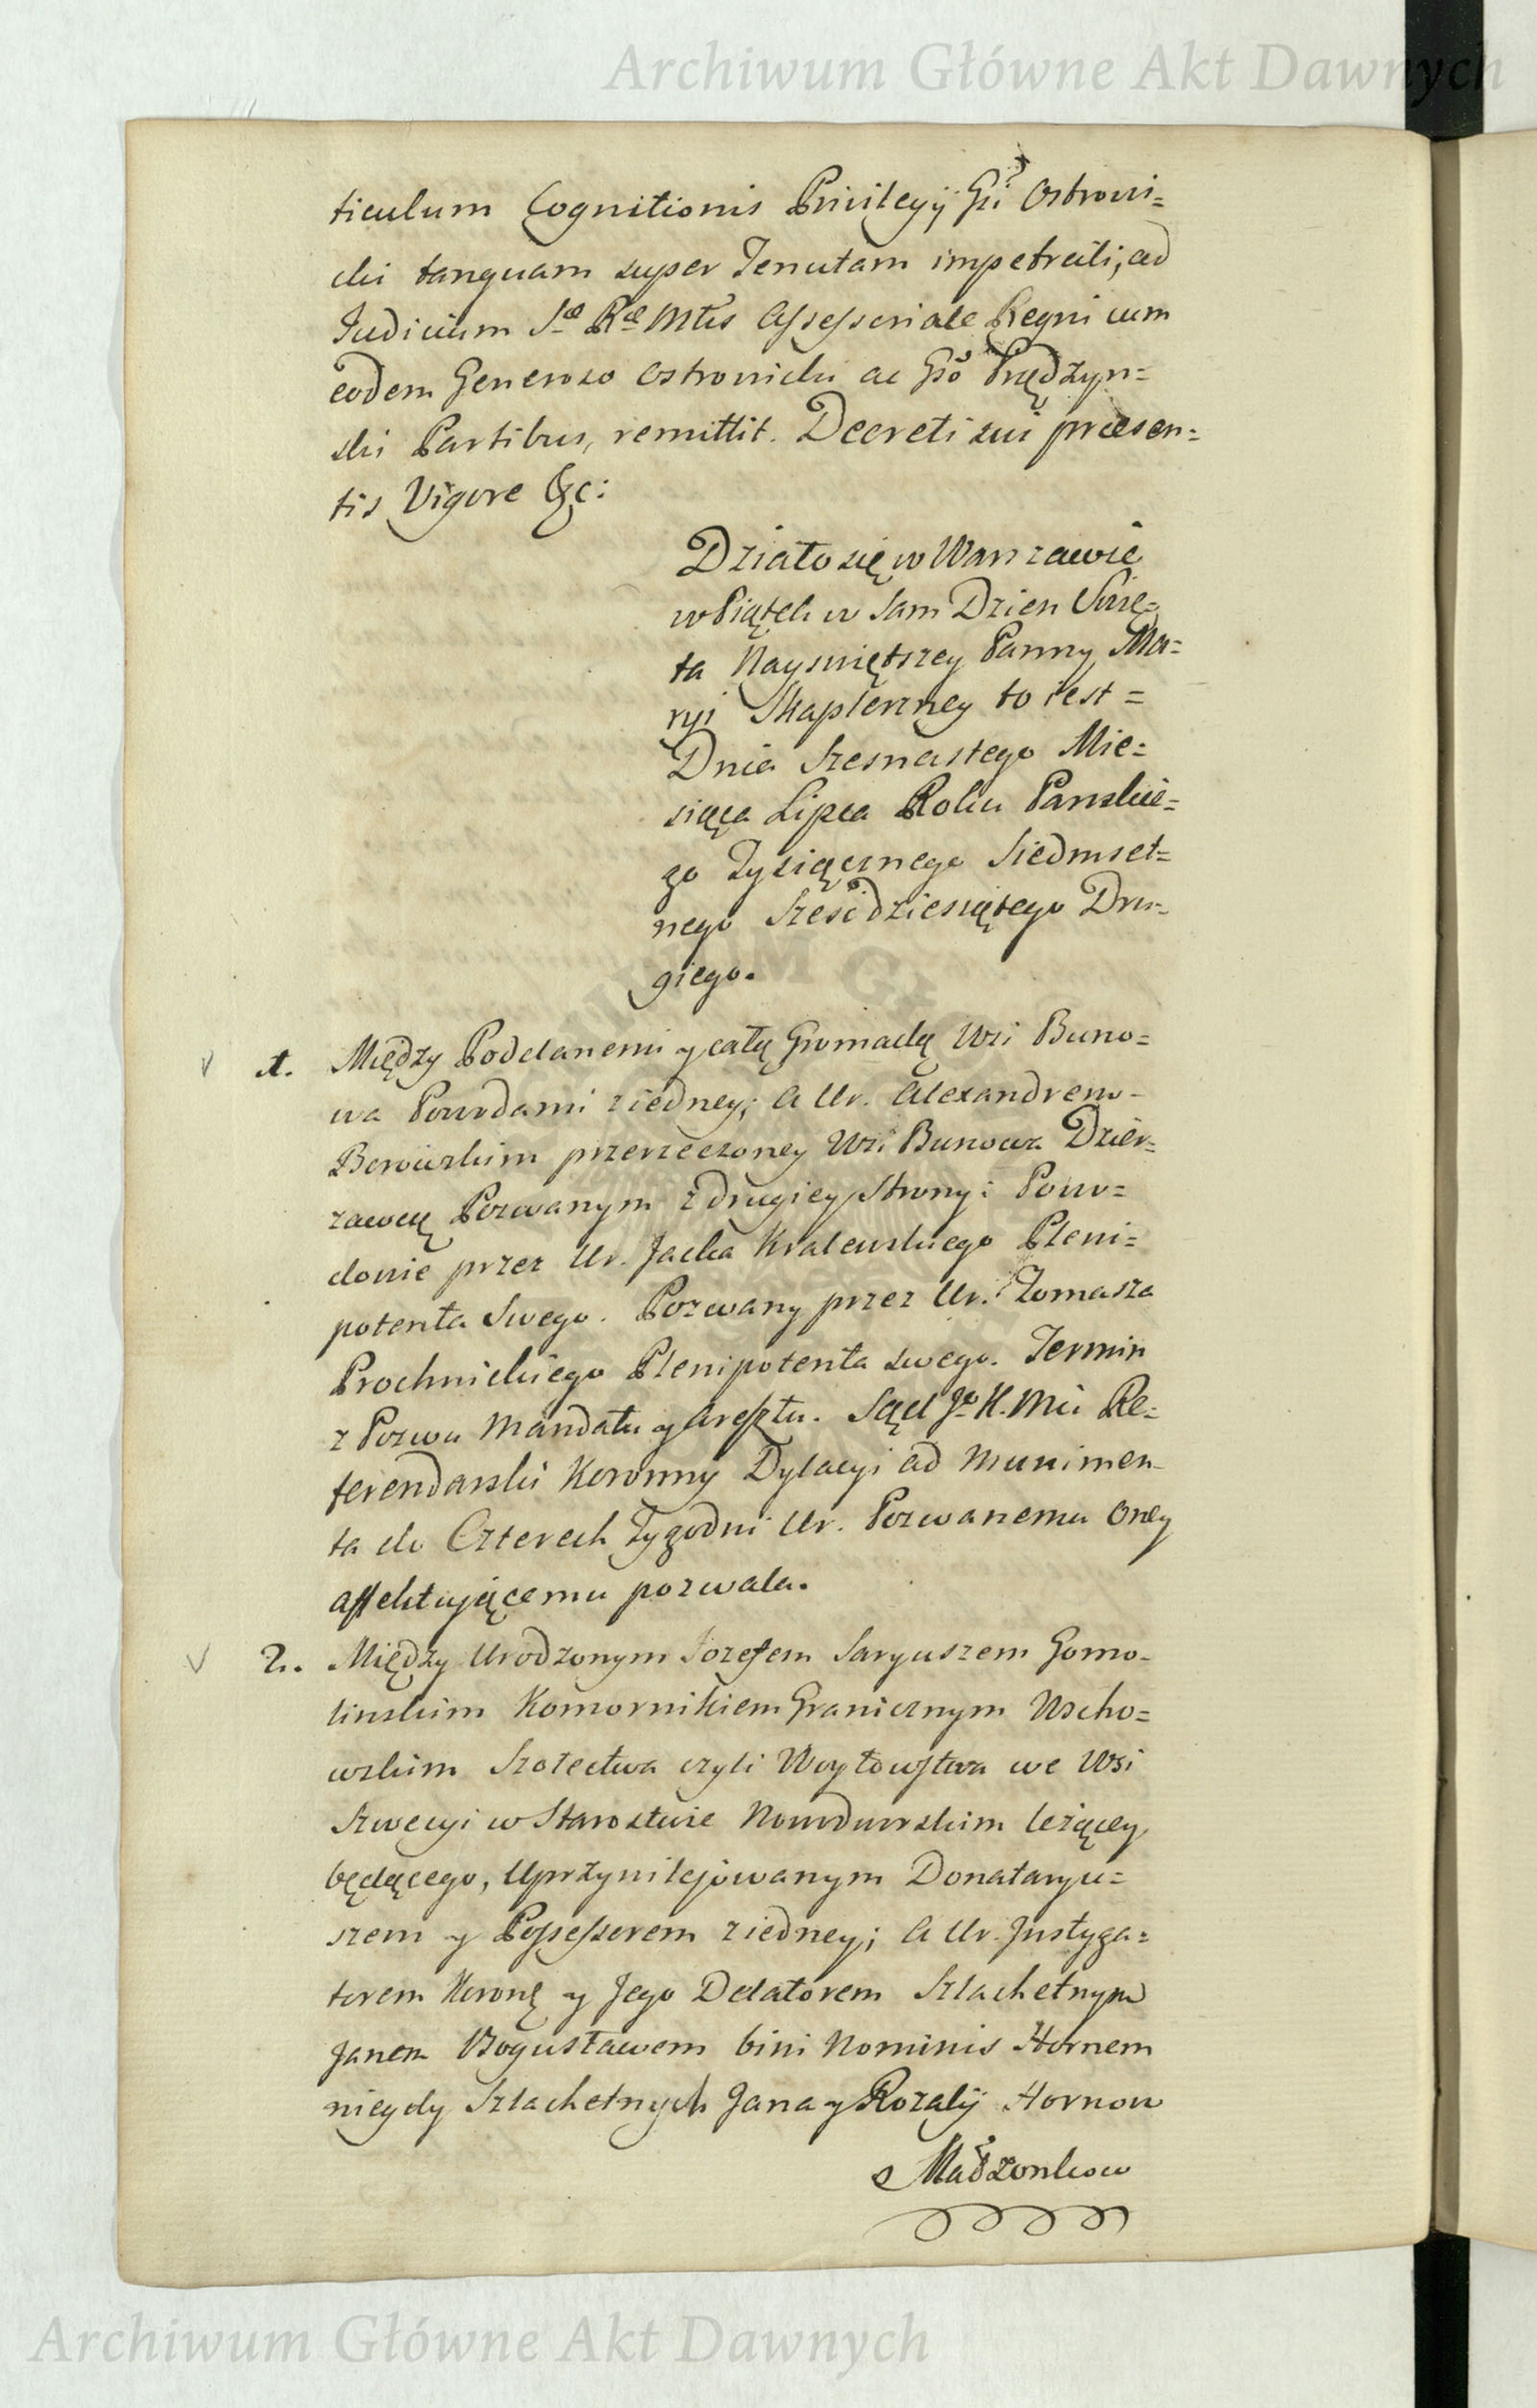 Archiwum Główne Akt Dawnych
ticulum Cognitionis Privilegÿ Gsi Ostrovi=
cki tanquam super Tenutam impetrati, ad
Judicium Sæ Ræ Mtis Assessoriale Regni cum
eodem Generoso Ostrowicki ac Gso Prędzyn=
ski Partibus, remittit. Decreti sui præsen=
tis Vigore &c:
Działo się w Warszawie
w Piątek w Sam Dzien Swię=
ta Nayswiętszey Panny Ma=
ryi Szkaplerzney to iest =
Dnia Szesnastego Mie=
siąca Lipca Roku Panskie=
go Tysiącznego Siedmset=
nego Sześcdziesiątego Dru=
giego.
1. Między Poddanemi y całą Gromadą Wsi Buno=
wa Powodami ziedney; a Ur. Alexandrem
Berowskim przerzeczoney Wsi Bunowa Dzier=
zawcą Pozwanym z drugiey Strony: Powo=
dowie przez Ur. Jacka Kralewskiego Pleni=
potenta Swego. Pozwany przez Ur. Tomasza
Prochnickiego Plenipotenta swego. Termin
z Pozwu Mandatu y Aresztu. Sąd Jo K. Mci Re=
ferendarski Koronny Dylacyi ad Munimen=
ta do Czterech Tygodni Ur. Pozwanemu oney
affektuiącemu pozwala.
2. Między Urodzonym Jozefem Saryuszem Gomo=
linskim Komornikiem Granicznym Wscho=
wskim Szołectwa czyli Woytowstwa we Wsi
Szwecyi w Starostwie Nowodworskim leżącey
będącego, Uprzywilejowanym Donataryu=
szem y Possessorem ziedney; a Ur. Instyga=
torem Koroną y Jego Delatorem Szlachetnym
Janem Bogusławem bini Nominis Hornem
niegdy Szlachetnych Jana y Rozalÿ Hornow
Małzonkow
Archiwum Główne Akt Dawnych